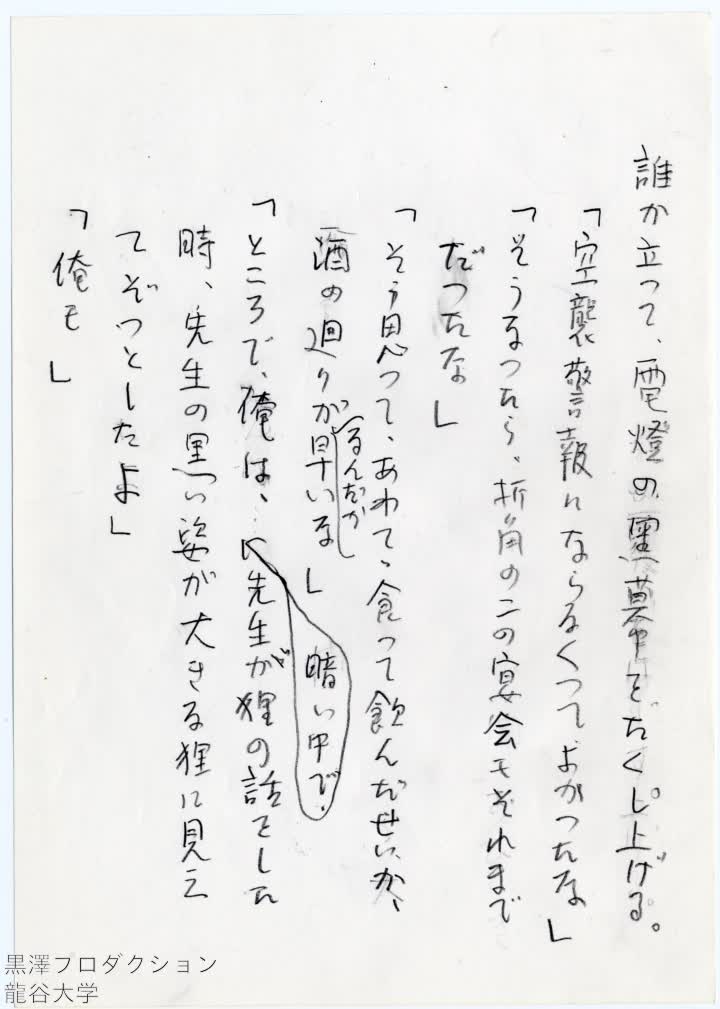 誰か立って、電燈の黒幕をたくし上げる。
「空襲警報にならなくってよかったな」
「そうなったら、折角のこの宴会もそれまで
だったな」
「そう思って、あわてゝ食って飲んだせいか、
酒の廻りが早いな」
るんだが
「ところで、俺は、…先生が狸の話をした
暗い中で、
時、先生の黒い姿が大きな狸に見え
てぞっとしたよ」
「俺も」
黒澤プロダクション
龍谷大学